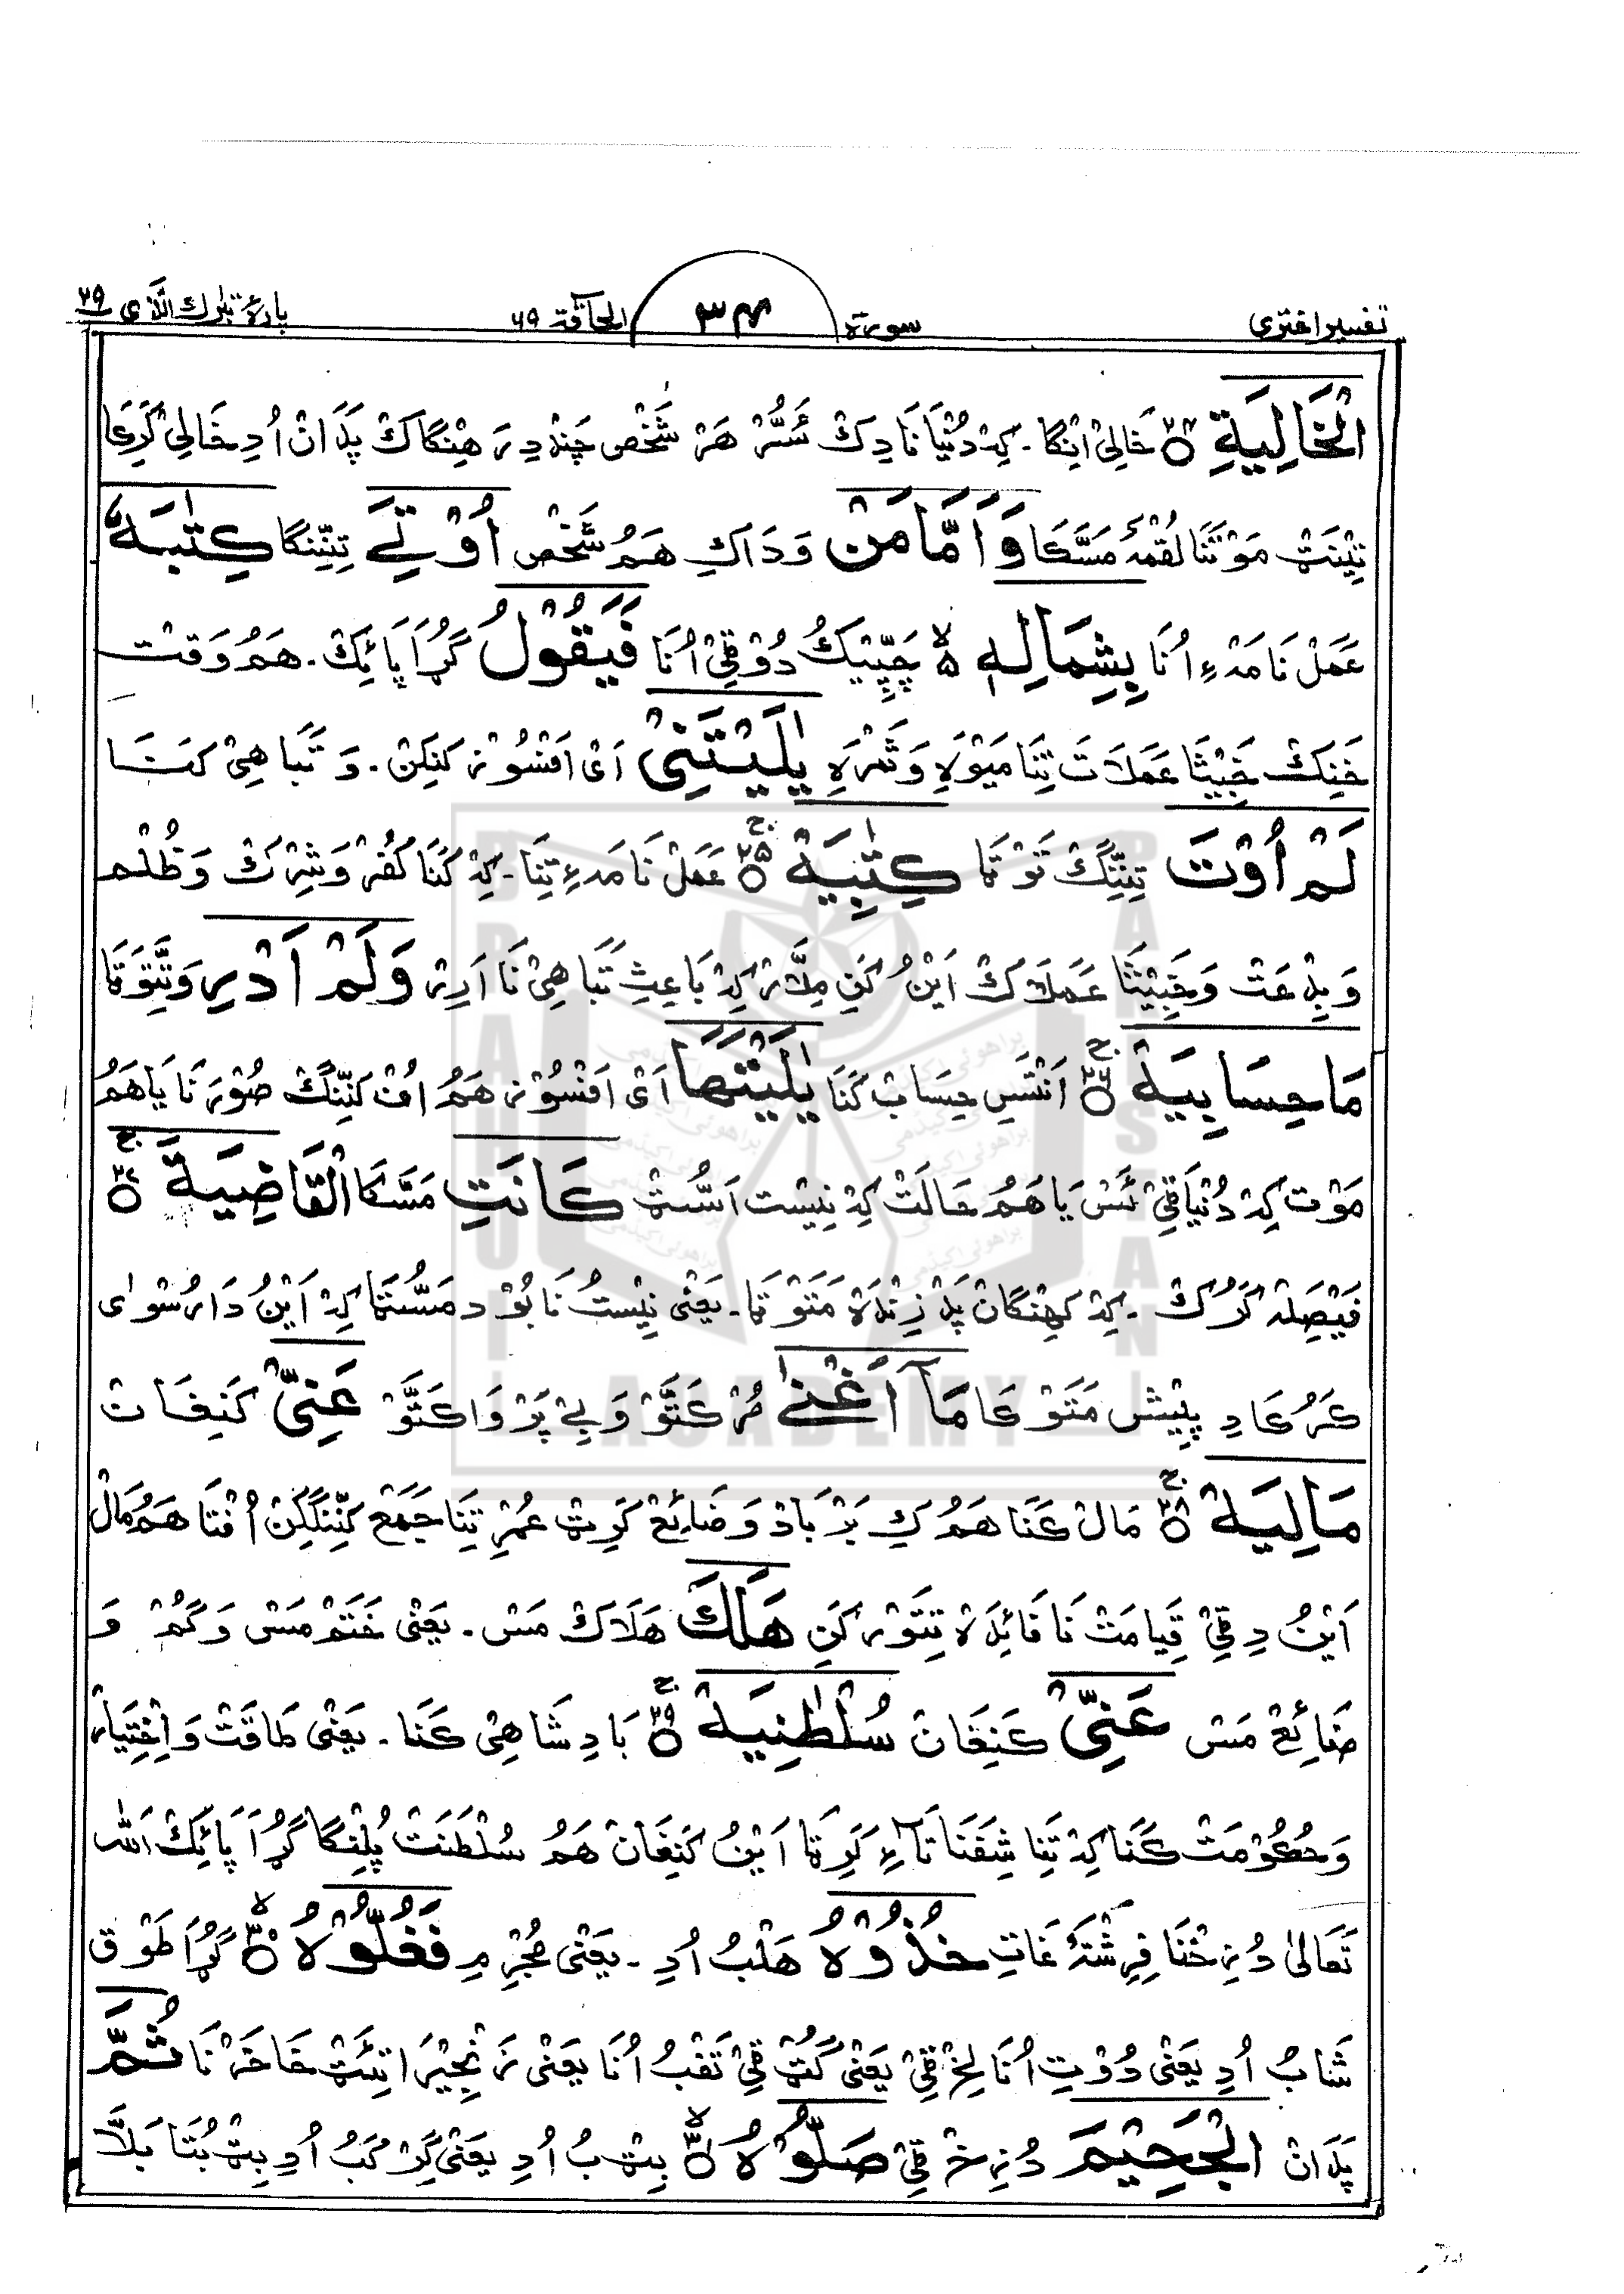 تفسیر اختری سورة ۳۴ الحآقة ۶۹ پارۂ تبٰرك الّذی ۲۹
الْخَالِيَةِ ۲۴ خَالِیْ اِنْگا۔ کِہ دُنْیَا نَا دِکْ ئَسُّرْ هَرْ شَخْص چَنْد دِرَ هِنْگاکْ پَدَانْ اُدِ خَالِیْ کَرِعَا
تِیْنَتْ مَوْتْنَا لُقْمَہٗ مَسَّکَا وَاَمَّا مَنْ وَ دَاکِ هَمُ شَخْص اُوْتِیَ تِنِّنْگا کِتٰبَهٗ
عَمَلْ نَامَہ ءِ اُنَا بِشِمَالِهٖ ۵ چَپِّیْکُ دُوْ قِیْ اُنَا فَيَقُوْلُ گُڑَا پَائِکْ۔ هَمُ وَقْت
خَنِكْ خَبِیْثَا عَمَلَاتَ تِنَا مَیَوْلَاِ وَ شَرْلَاِ يٰلَيْتَنِیْ اَیْ اَفْسُوْز کَنِکِنْ۔ وَ تَبَاهِیْ کَنَا
لَمْ اُوْتَ تِنِّنْگْ تَوْتَا كِتٰبِيَهْ ۲۵ عَمَلْ نَامَہ ءِ تِنَا۔ کِہ کَنَا کُفْرْ وَ شِرْك وَ ظُلْم
وَ بِدْعَتْ وَ خَبِیْثَا عَمَلَاكْ اَیْنُ کَنِ مِلَّارْ کِہ بَاعِثِ تَبَاهِیْ نَا اَرِرْ وَلَمْ اَدْرِ وَ تِتَوْتَا
مَا حِسَابِيَهْ ۲۶ اَنْتَسِ حِسَابْ کَنَا يٰلَيْتَهَا اَیْ اَفْسُوْز هَمُ اُفْ کَنِّنْگْ صُوْرَ نَا یَا هَمُ
مَوْت کِہ دُنْیَا قِیْ ئَسْ یَا هَمُ حَالَتْ کِہ نِیْست اَسُّتْ كَانَتِ مَسَّکَا الْقَاضِيَةَ ۲۷
فَیْصِلَہ کَرُکْ۔ کِہ کِهِنْگانْ پَدْ زِنْدَہ مَتَوْتَا۔ یَعْنٰی نِیْسْتُ نَابُوْد مَسُّتَا کِہ اَیْنُ دَا رُسْوَای
کَرُکَا دِ پِیْش مَتَوْکَا مَآ اَغْنٰی مُرْ کَتَّوْ وَ بِےْ پَرْوَا کَتَّوْ عَنِّیْ کَنِغَانْ
مَالِيَهْ ۲۸ مَالْ کَنَا هَمُ کِ بَرْبَادْ وَ ضَائِعْ کَرِتْ عُمْرِ تِنَا جَمَعْ کَنِّنْگِکِنْ اُفْتَا هَمُ مَالْ
اَیْنُ دِ قِیْ قِیَامَتْ نَا فَائِدَہ تِتَوْر کَنِ هَلَكَ هَلَاكْ مَسْ۔ یَعْنٰی خَتَمْ مَسْ وَ گُمْ وَ
ضَائِعْ مَسْ عَنِّیْ کَنِغَانْ سُلْطٰنِيَهْ ۲۹ بَادِشَاهِیْ کَنَا۔ یَعْنٰی طَاقَتْ وَ اِخْتِیَارْ
وَ حُکُوْمَتْ کَنَا کِہ تِنَا شِفَنَاتَآءِ کَرِتَا اَیْنُ کَنِغَانْ هَمُ سُلْطَنَتْ پُلِنْگا گُڑَا پَائِكْ اَللّٰه
تَعَالٰی دُزِخْنَا فِرِشْتَہ غَاتِ خُذُوْهُ هَلْبُ اُدِ۔ یَعْنٰی مُجْرِمِ فَغُلُّوْهُ ۳۰ گُڑَا طَوْق
شَابُ اُدِ یَعْنٰی دُوْتِ اُنَا لِخْ قِیْ یَعْنٰی گُٹْ قِیْ تَفْبُ اُنَا یَعْنٰی زَنْجِیْرَاتِیَتْ خَاخَرْنَا ثُمَّ
پَدَانْ الْجَحِيْمَ دُزِخْ قِیْ صَلُّوْهُ ۳۱ بِٹْ بُ اُدِ یَعْنٰی گِرْکَبُ اُدِ بِٹْ بُتَا بَلَّا
BRAHUI
ACADEMY
PAKISTAN